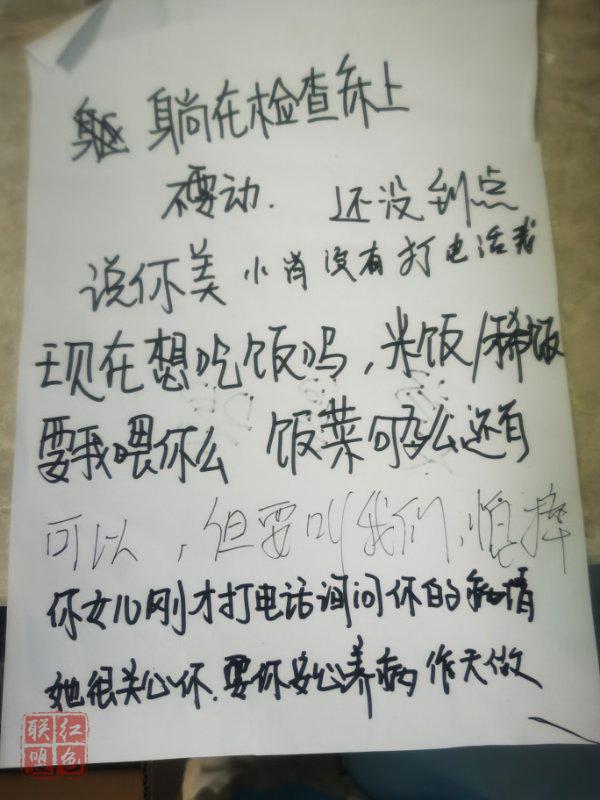 躺在检查床上
不要动. 还没到点
说你美 小肖没有打电话我
现在想吃饭吗,米饭/稀饭
要我喂你么 饭菜够么还有
可以,但要叫我们,怕摔
你女儿刚才打电话询问你的病情
她很关心你.要你安心养病 作天做
红色联盟